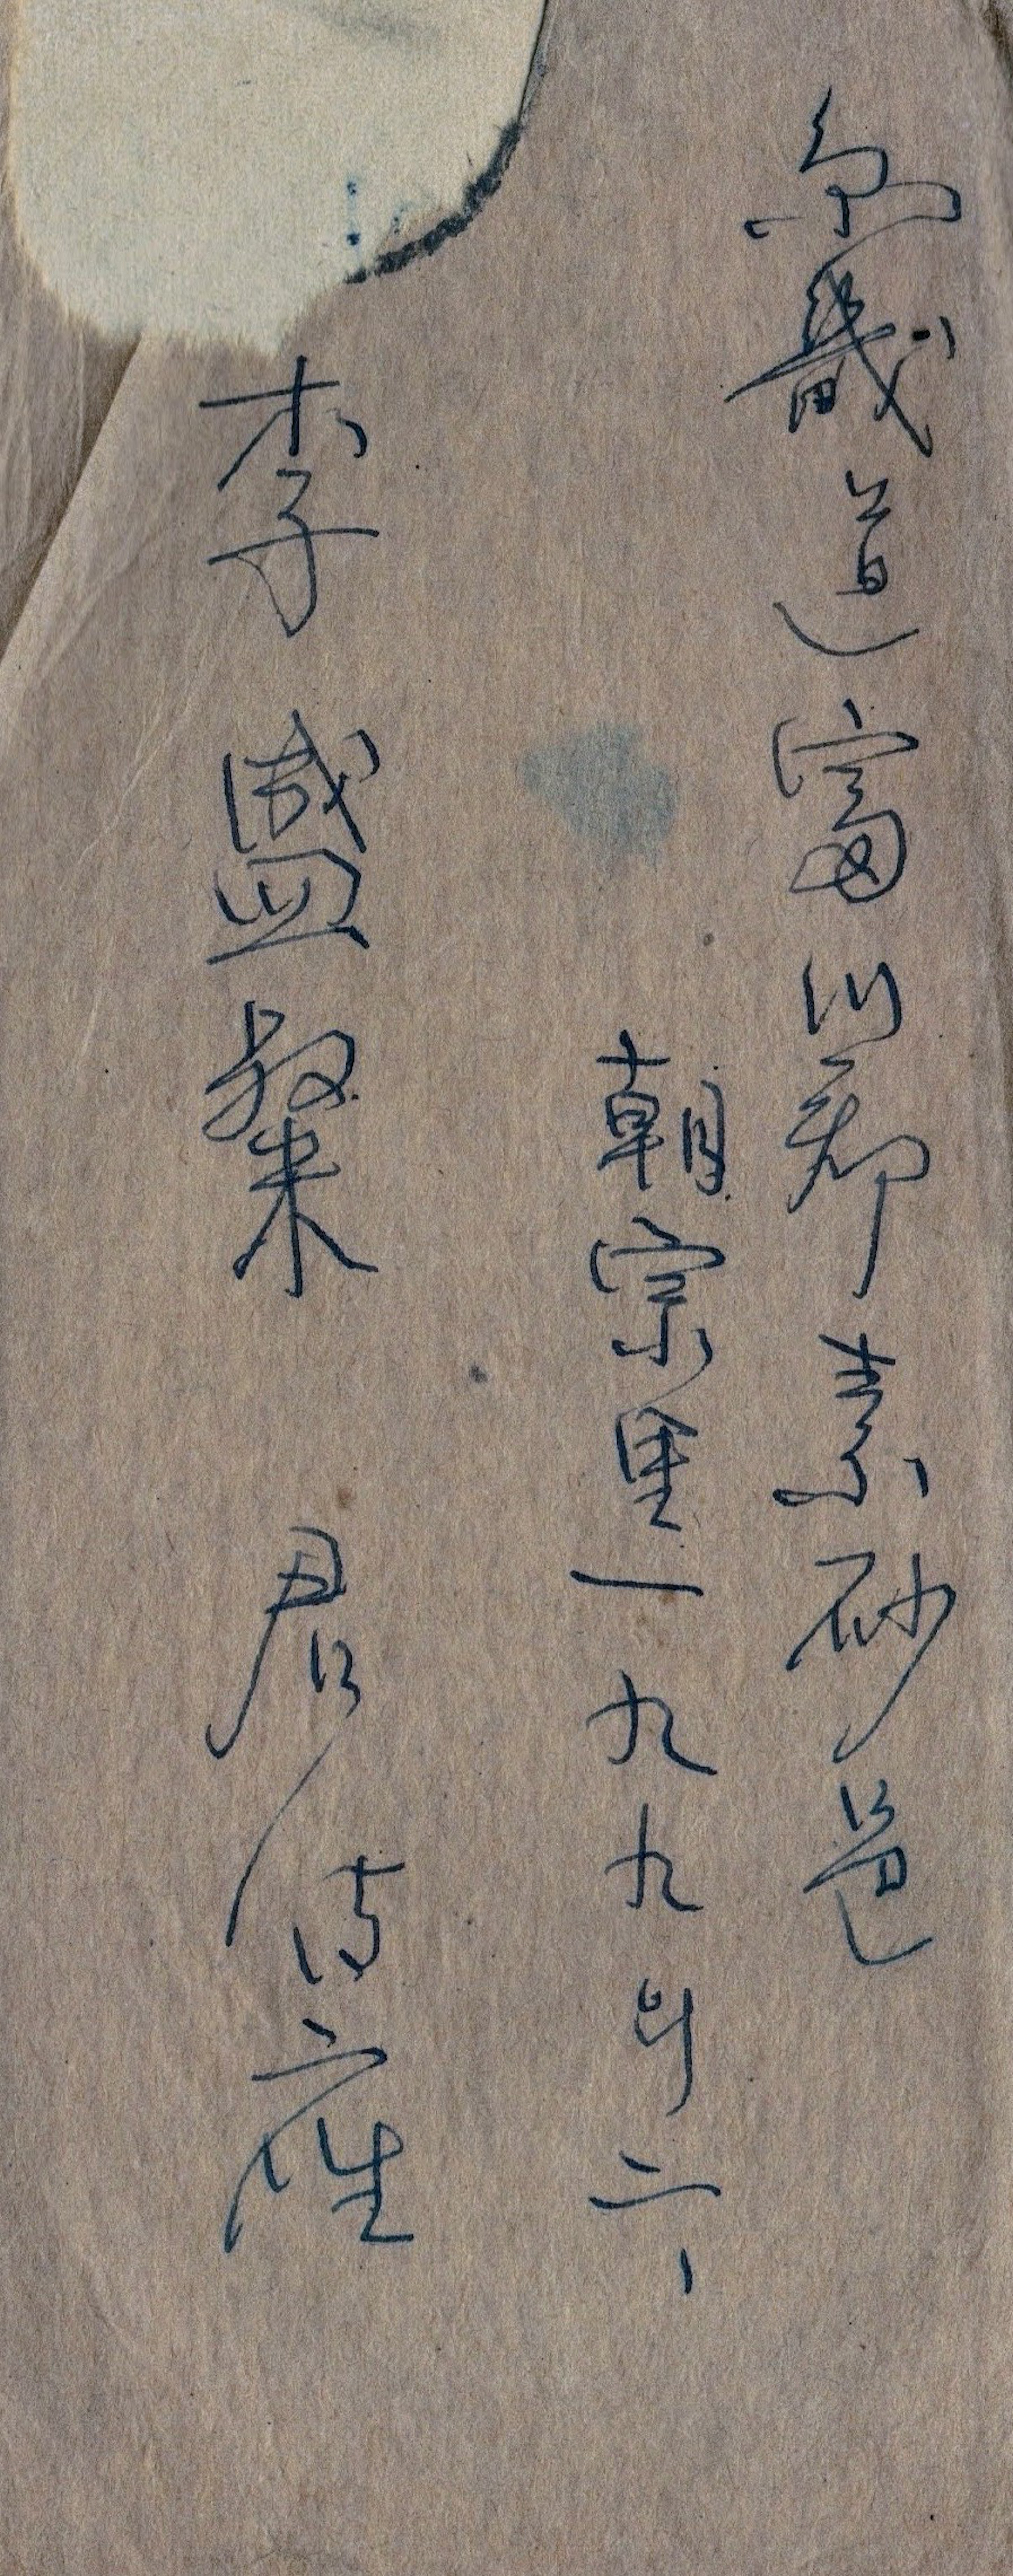 京畿道富川郡素砂邑
朝宗里一九九의六
李盛粲 君 侍座